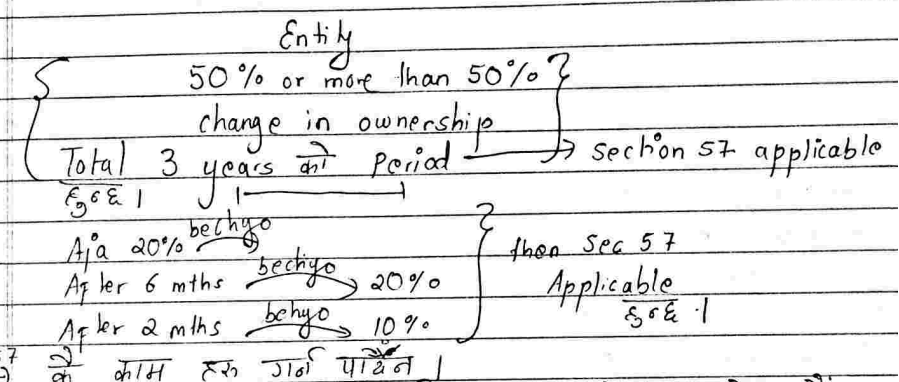 Entity
50% or more than 50%
change in ownership
Total 3 years को Period → section 57 applicable
हुन्छ ।
Aja 20% bechyo
After 6 mths bechyo 20%
After 2 mths behyo 10%
then Sec 57
Applicable
हुन्छ ।
के काम हरु गर्न पाउँदैन ।